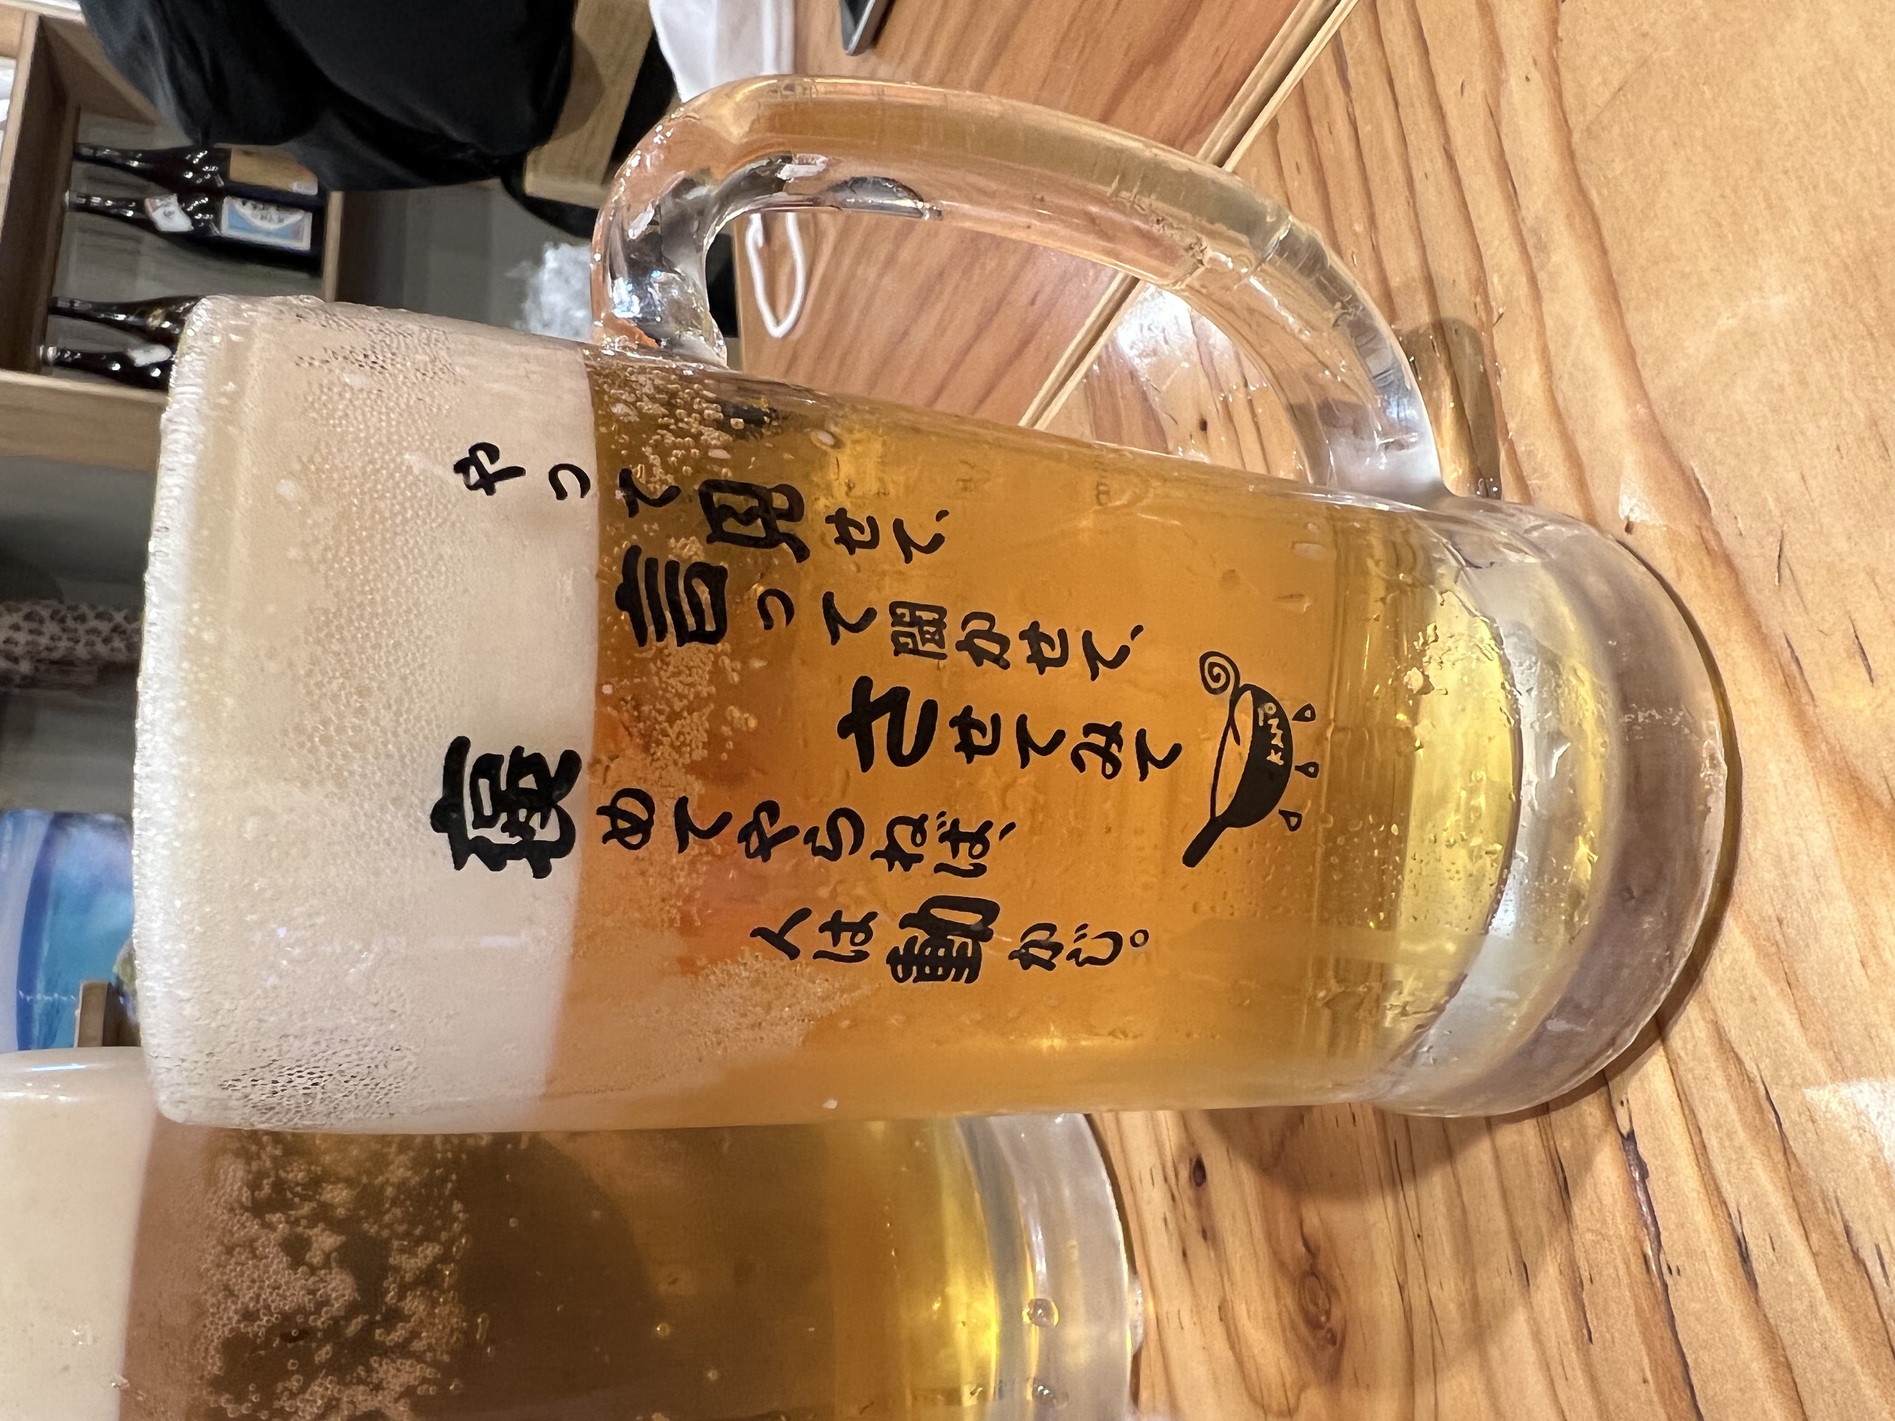 やって見せて、
言って聞かせて、
させてみて
褒めてやらねば、
人は動かじ。